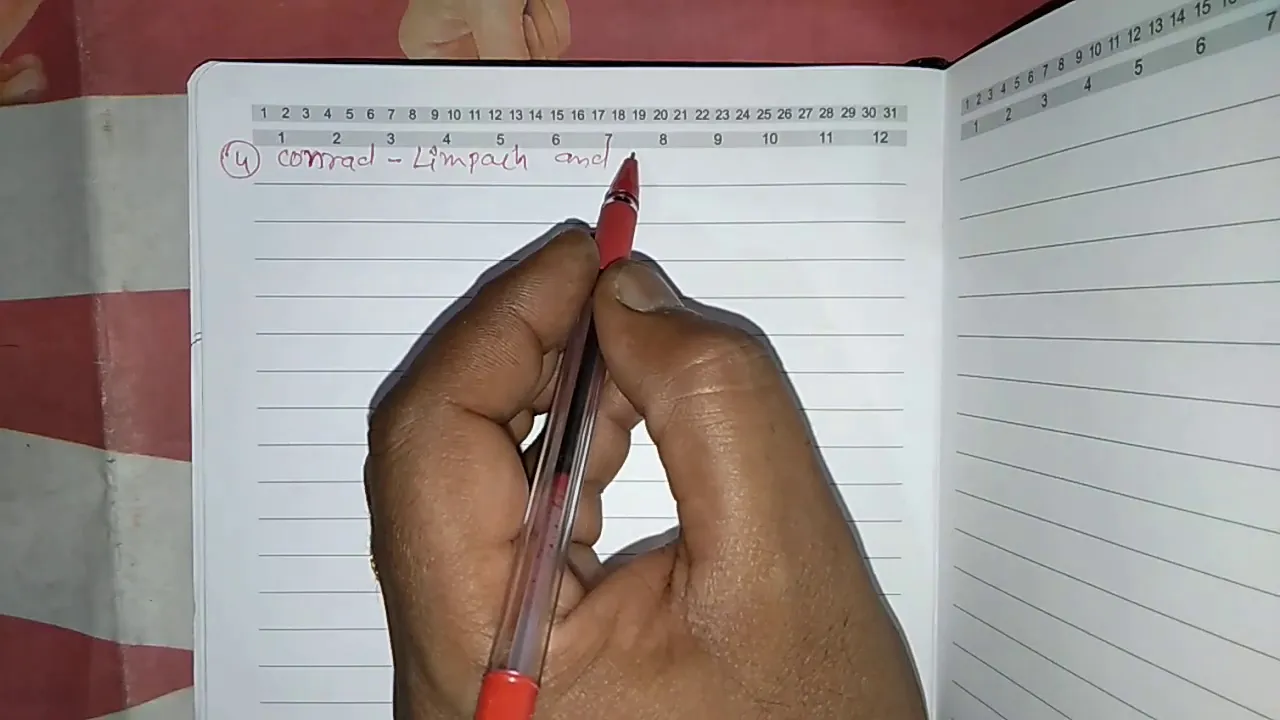 1 2 3 4 5 6 7 8 9 10 11 12 13 14 15 16 17 18 19 20 21 22 23 24 25 26 27 28 29 30 31
1 2 3 4 5 6 7 8 9 10 11 12
4 Conrad - Limpach and
1 2 3 4 5 6 7 8 9 10 11 12 13 14 15
1 2 3 4 5 6 7